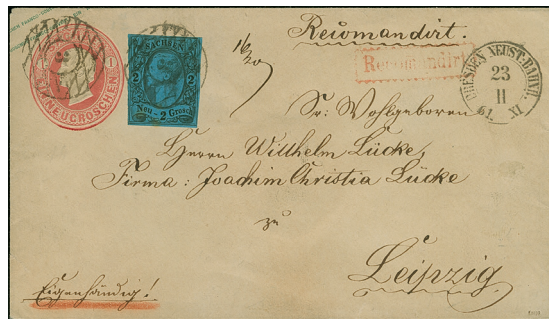 Recomandirt.
NEUGROSCHEN
SACHSEN
2 2
Neu - 2 Grosch
16/20
Recomandirt
DRESDEN NEUST: BAHNH.
23
II
61. XI
Sr: Wohlgeboren
Herrn Willhelm Lücke,
Firma: Joachim Christia Lücke
zu
Leipzig
Eigenhändig!